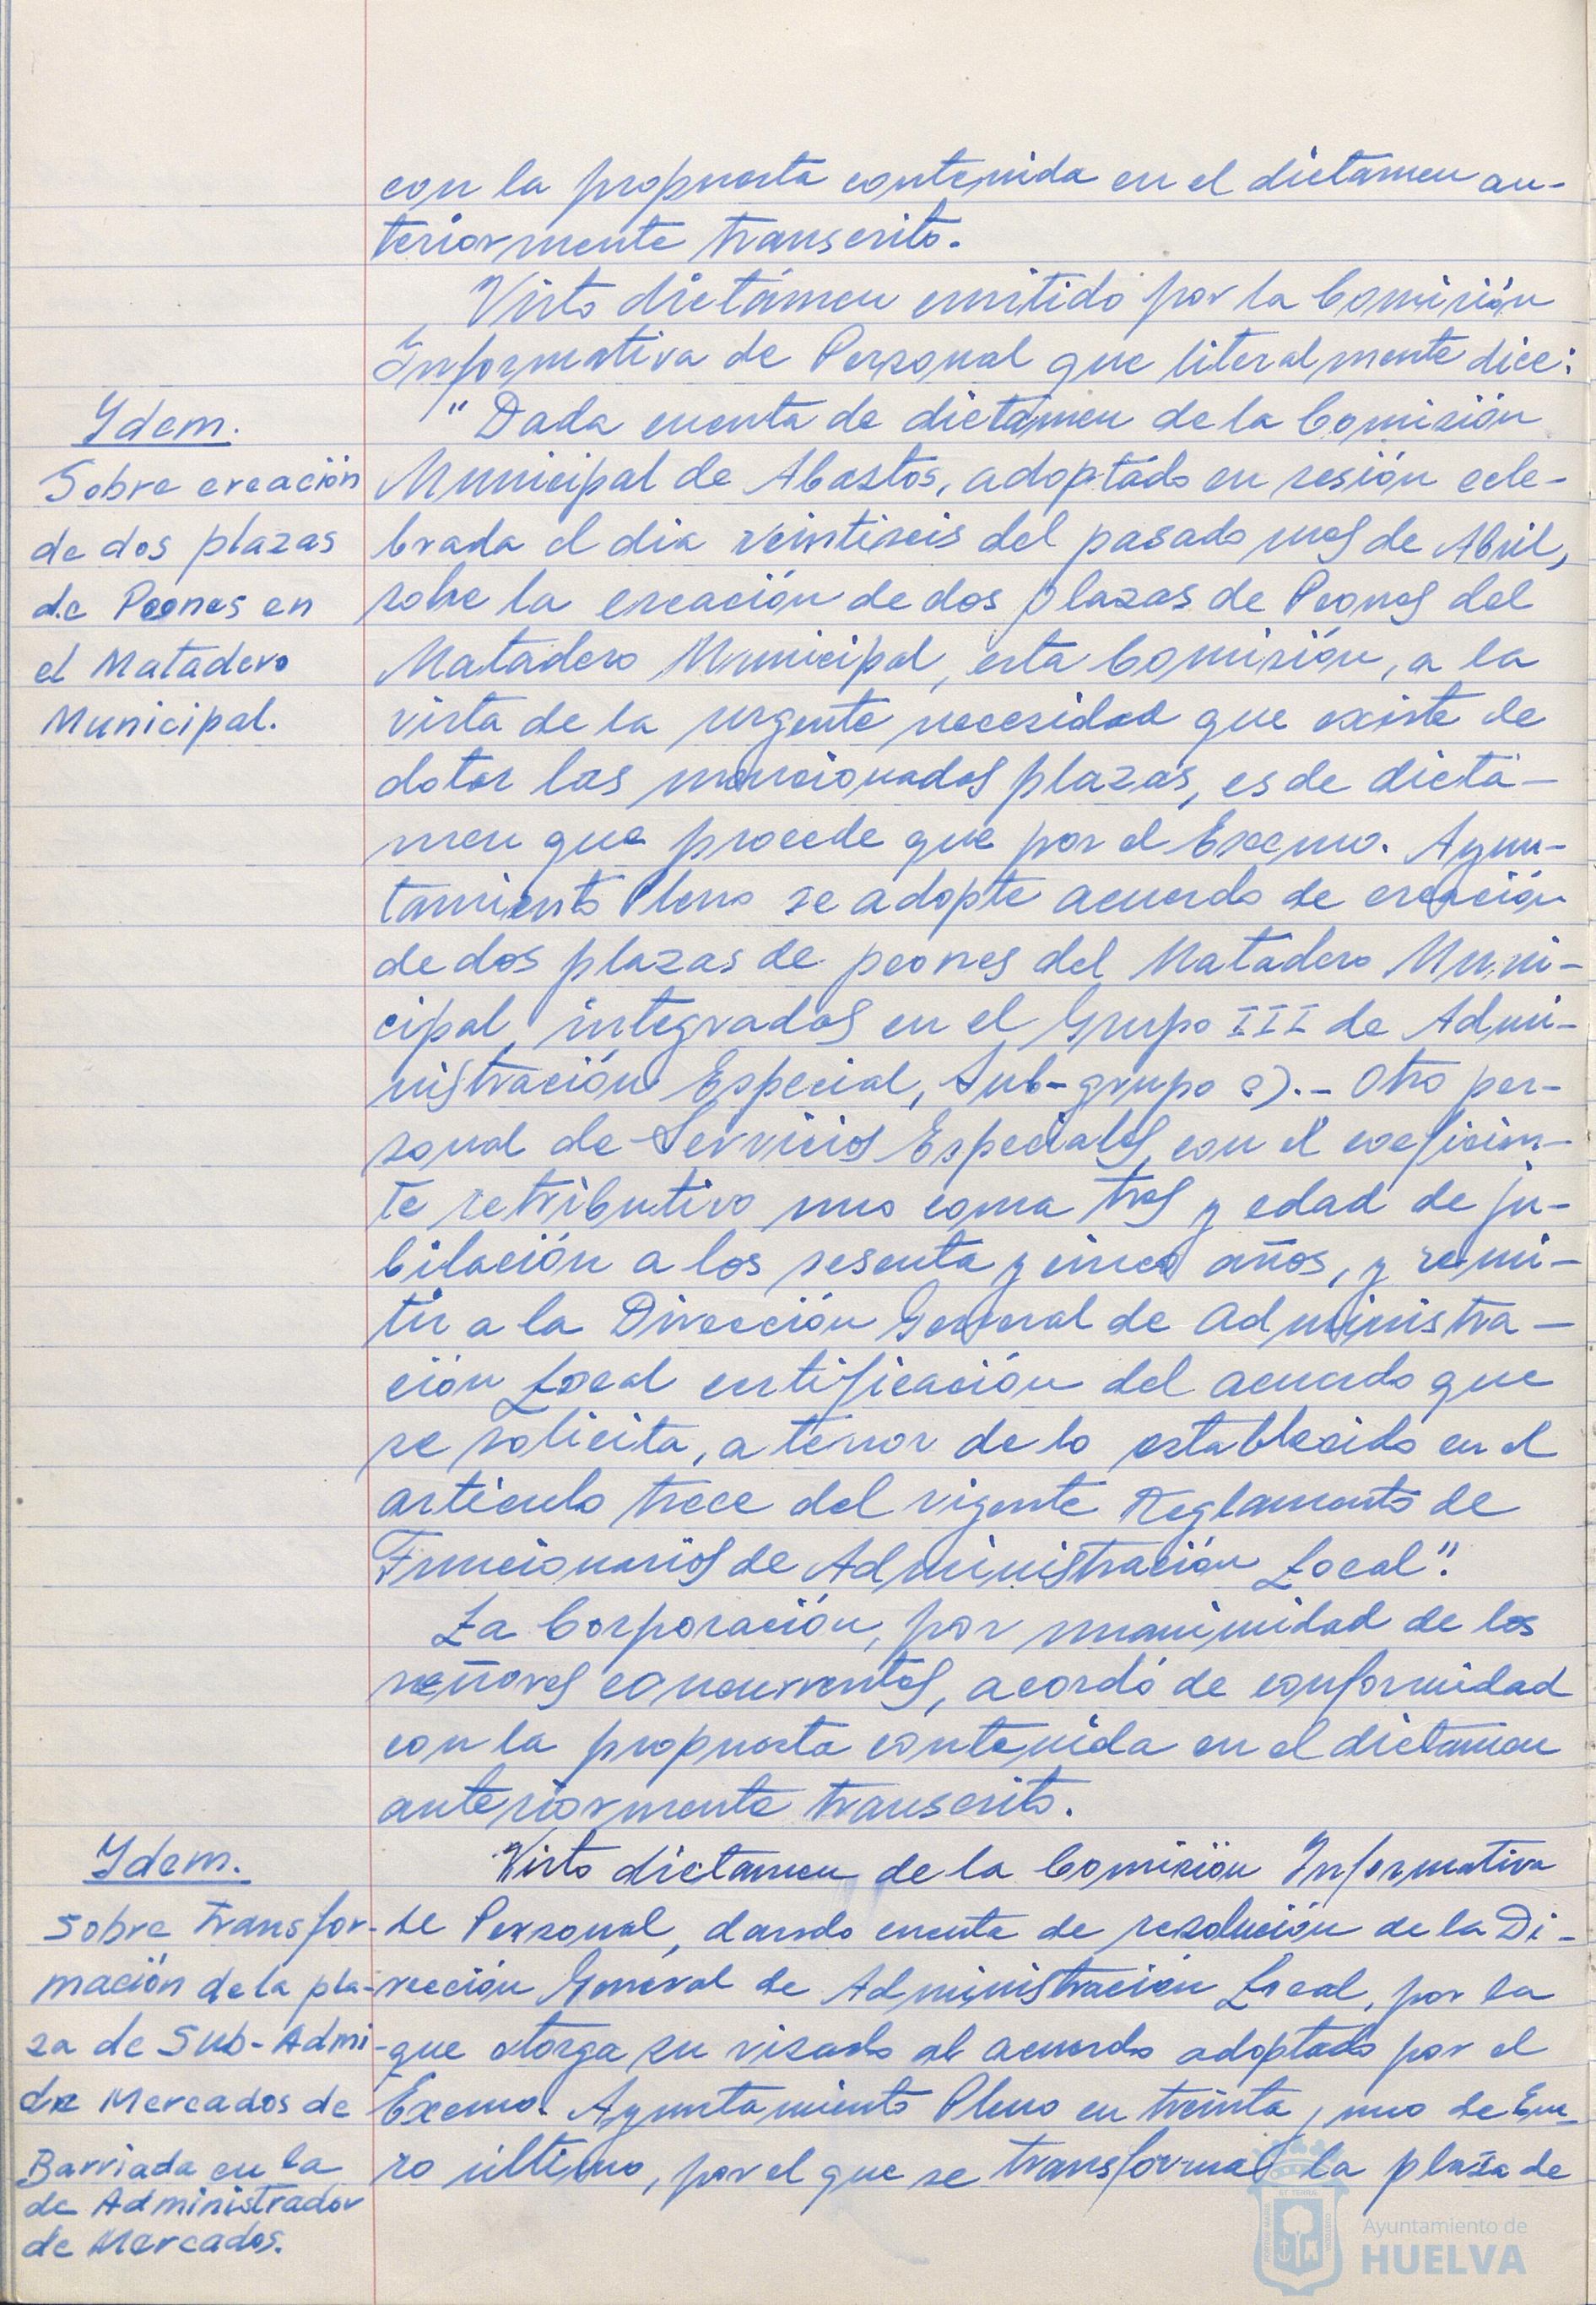 con la propuesta contenida en el dictamen an-
teriormente transcrito.
Visto dictámen emitido por la Comisión
Informativa de Personal que literalmente dice:
Ydem.
Sobre creación
de dos plazas
de Peones en
el Matadero
Municipal.
"Dada cuenta de dictámen de la Comisión
Municipal de Abastos, adoptado en sesión cele-
brada el dia veintiseis del pasado mes de Abril,
sobre la creación de dos plazas de Peones del
Matadero Municipal, esta Comisión, a la
vista de la urgente necesidad que existe de
dotar las mencionadas plazas, es de dictá-
men que procede que por el Excmo. Ayun-
tamiento Pleno se adopte acuerdo de creación
de dos plazas de peones del Matadero Muni-
cipal, integrados en el Grupo III de Admi-
nistración Especial, Sub-grupo c).- Otro per-
sonal de Servicios Especiales, con el coeficien-
te retributivo uno coma tres y edad de ju-
bilación a los sesenta y cinco años, y remi-
tir a la Dirección General de Administra-
ción Local certificación del acuerdo que
se solicita, a tenor de lo establecido en el
artículo trece del vigente Reglamento de
Funcionarios de Administración Local".
La Corporación, por unanimidad de los
señores concurrentes, acordó de conformidad
con la propuesta contenida en el dictamen
anteriormente transcrito.
Ydem.
Sobre transfor-
mación de la pla-
za de Sub-Admi-
dr Mercados de
Barriada en la
de Administrador
de Mercados.
Visto dictamen de la Comisión Informativa
de Personal, dando cuenta de resolución de la Di-
rección General de Administración Local, por la
que otorga su visado al acuerdo adoptado por el
Excmo. Ayuntamiento Pleno en treinta y uno de Ene-
ro último, por el que se transforma la plaza de
Ayuntamiento de
HUELVA